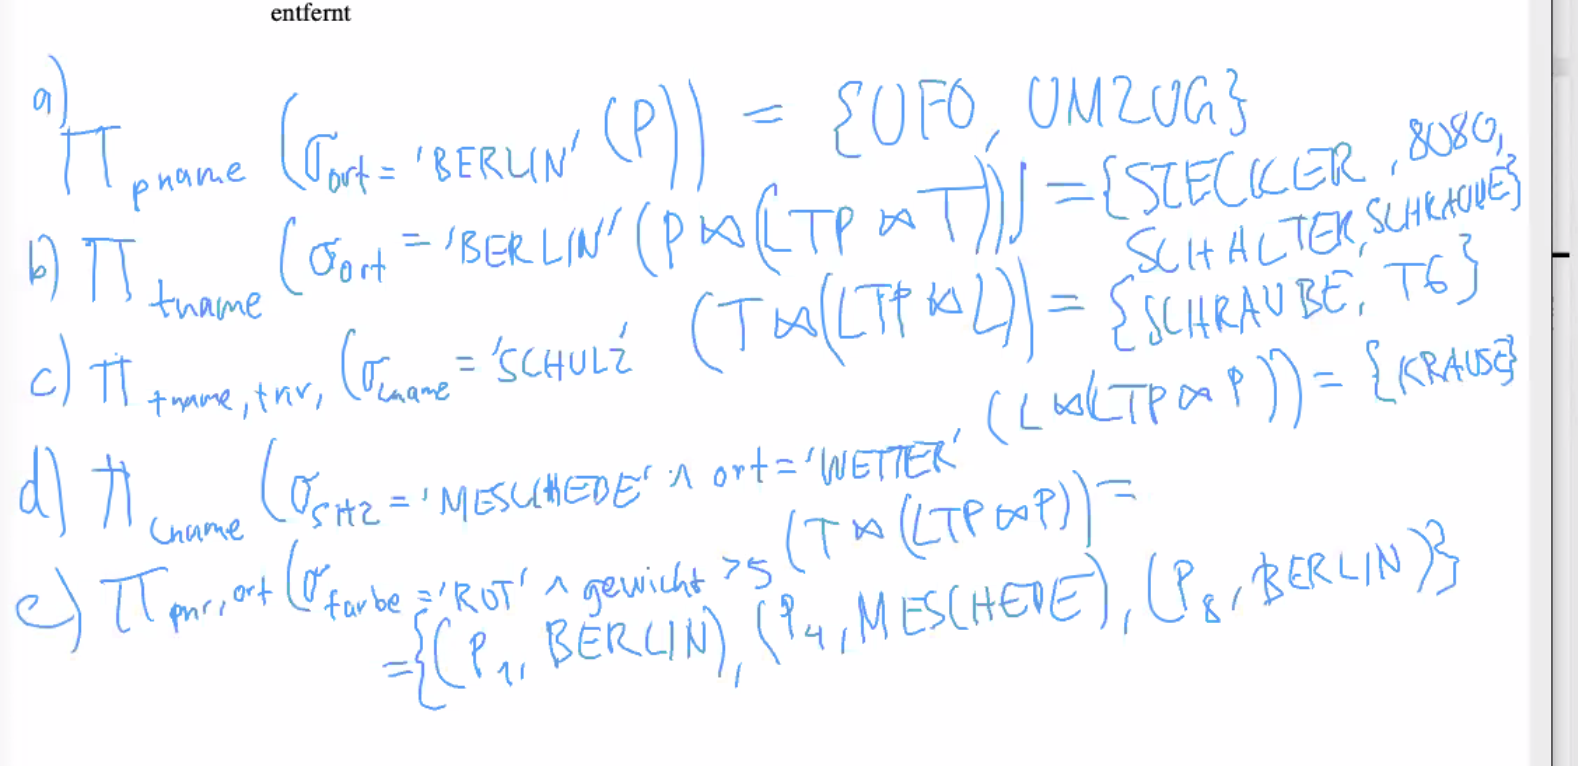 entfernt
a) Π pname (σ ort = 'BERLIN' (P)) = {UFO, UMZUG}
b) Π tname (σ ort = 'BERLIN' (P ⋈ (LTP ⋈ T))) = {STECKER, 8080, SCHALTER, SCHRAUBE}
c) Π tname, tnr, (σ Lname = 'SCHULZ' (T ⋈ (LTP ⋈ L)) = {SCHRAUBE, T6}
d) π Lname (σ SITZ = 'MESCHEDE' ∧ ort = 'WETTER' (L ⋈ (LTP ⋈ P))) = {KRAUSE}
e) Π pnr, ort (σ farbe = 'ROT' ∧ gewicht > 5 (T ⋈ (LTP ⋈ P)) =
= {(P1, BERLIN), (P4, MESCHEDE), (P8, BERLIN)}